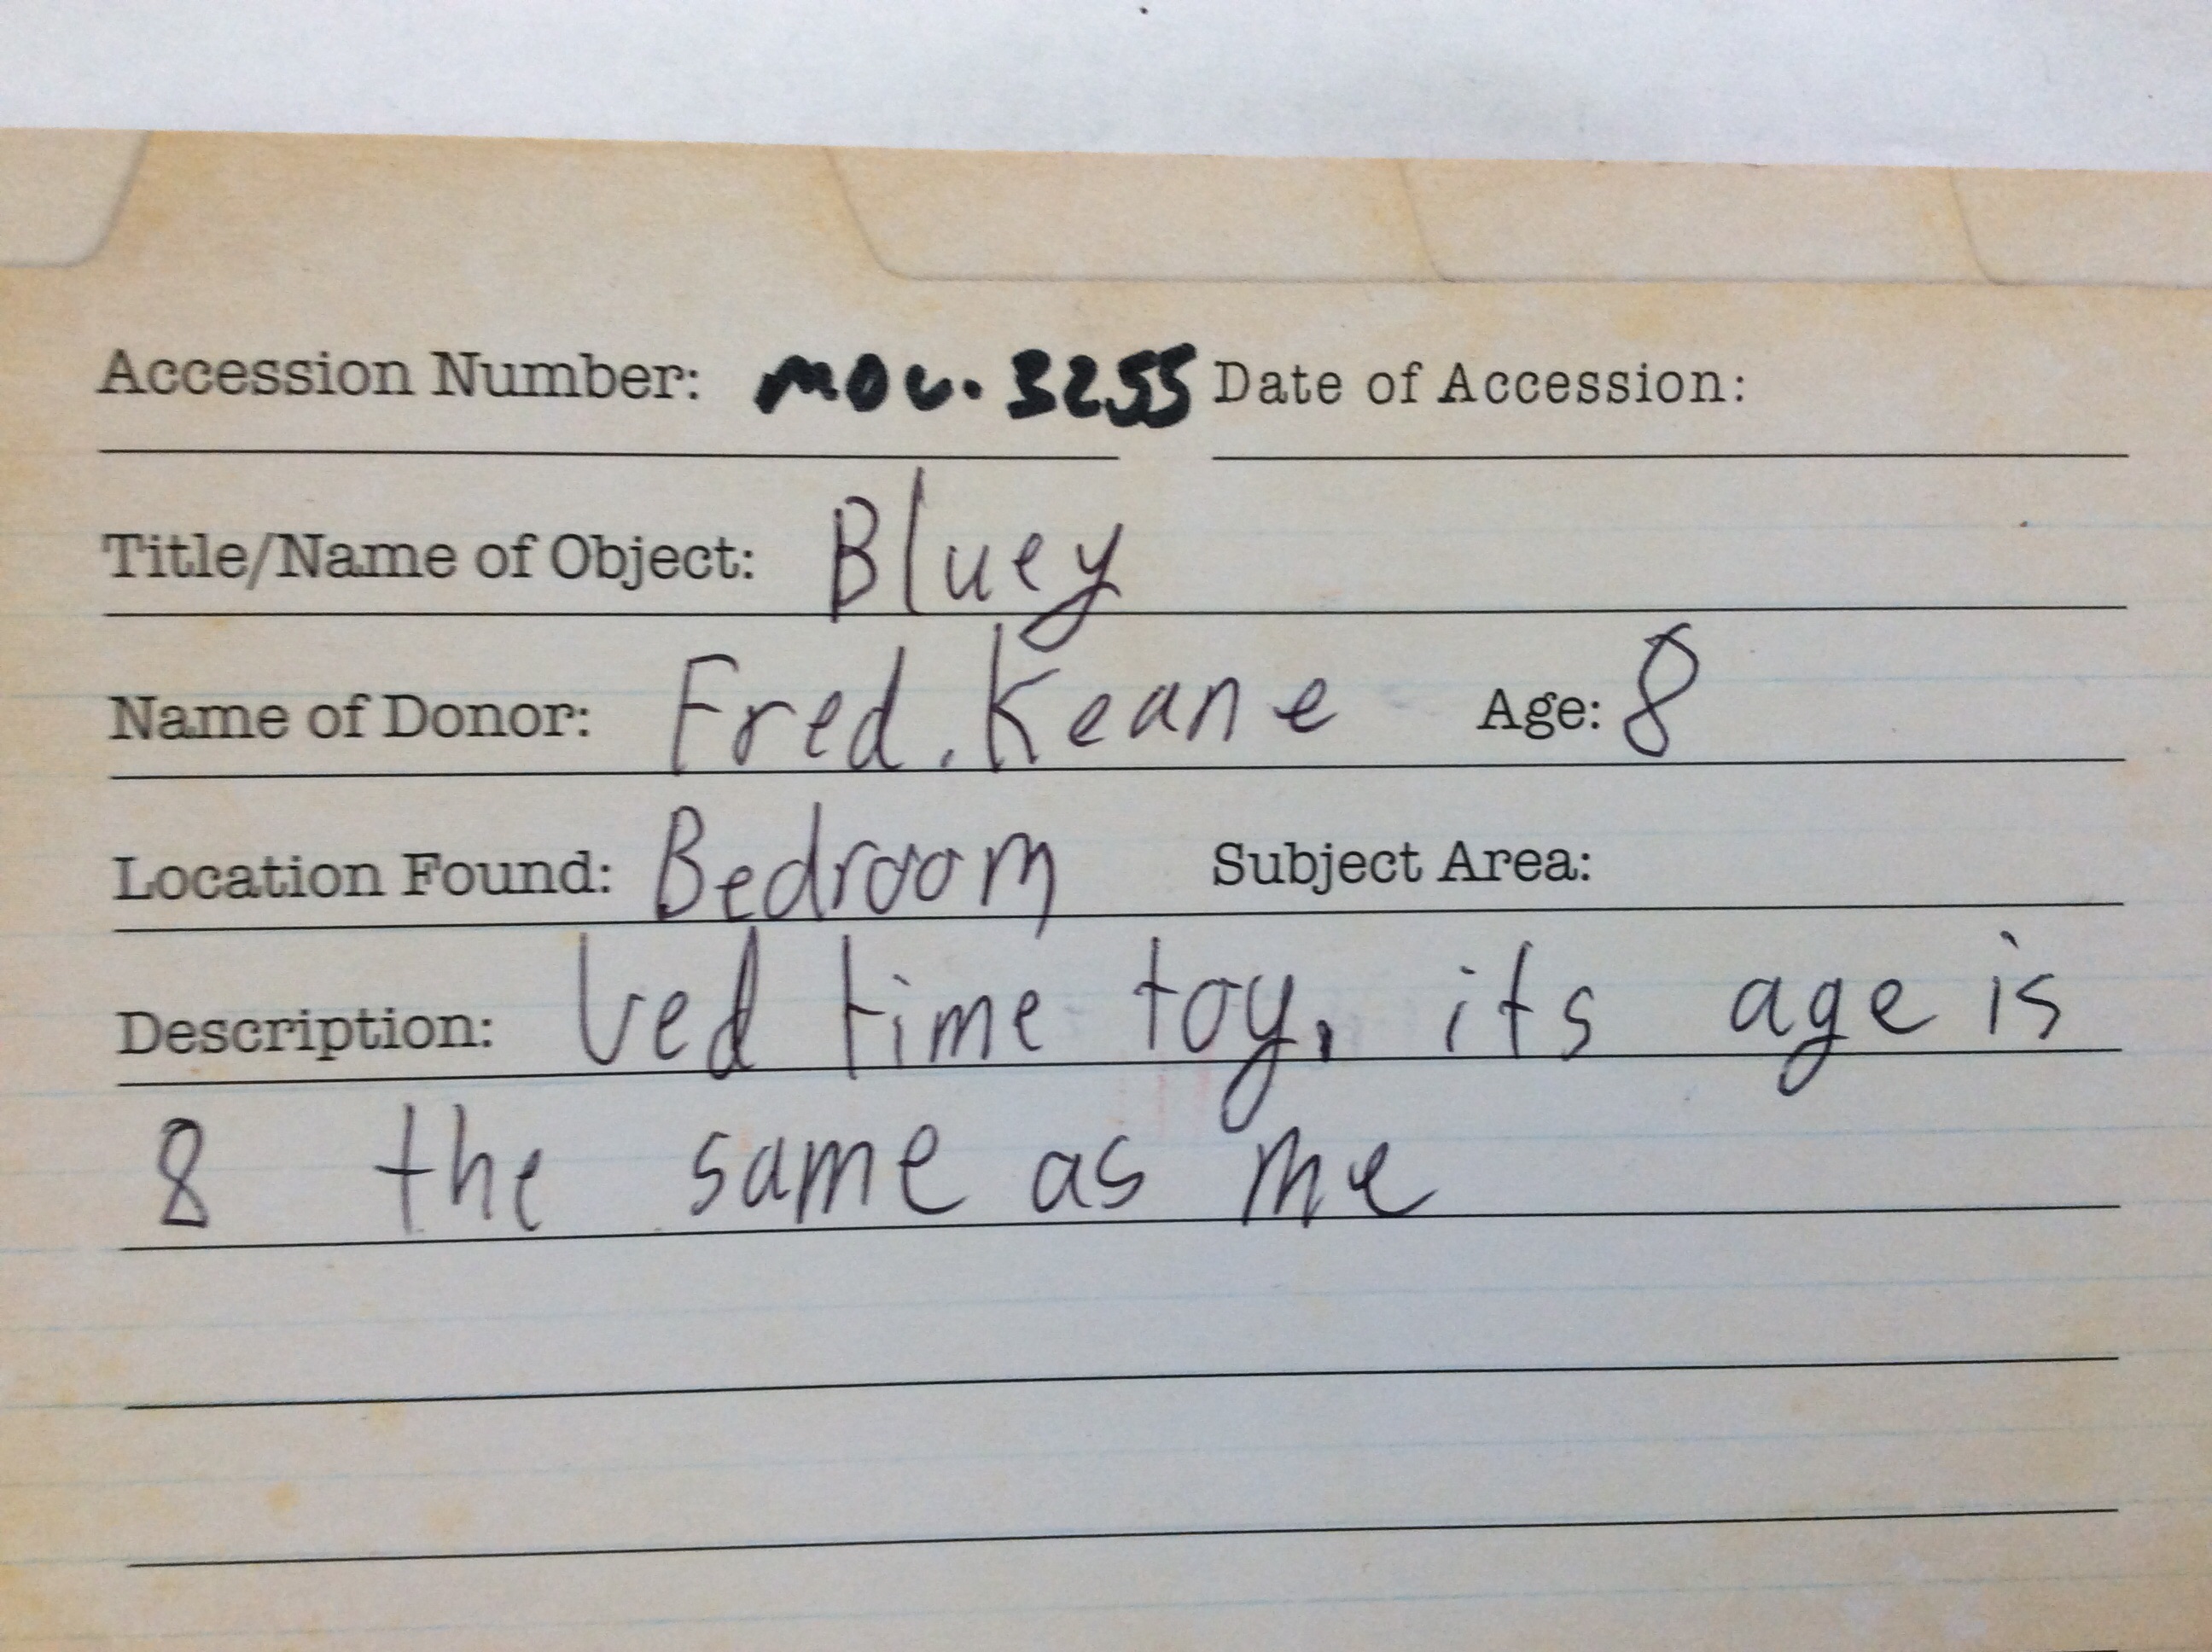 Accession Number: MOU.3255 Date of Accession:
Title/Name of Object: Bluey
Name of Donor: Fred.Keane Age: 8
Location Found: Bedroom Subject Area:
Description: bed time toy, its age is
8 the same as me